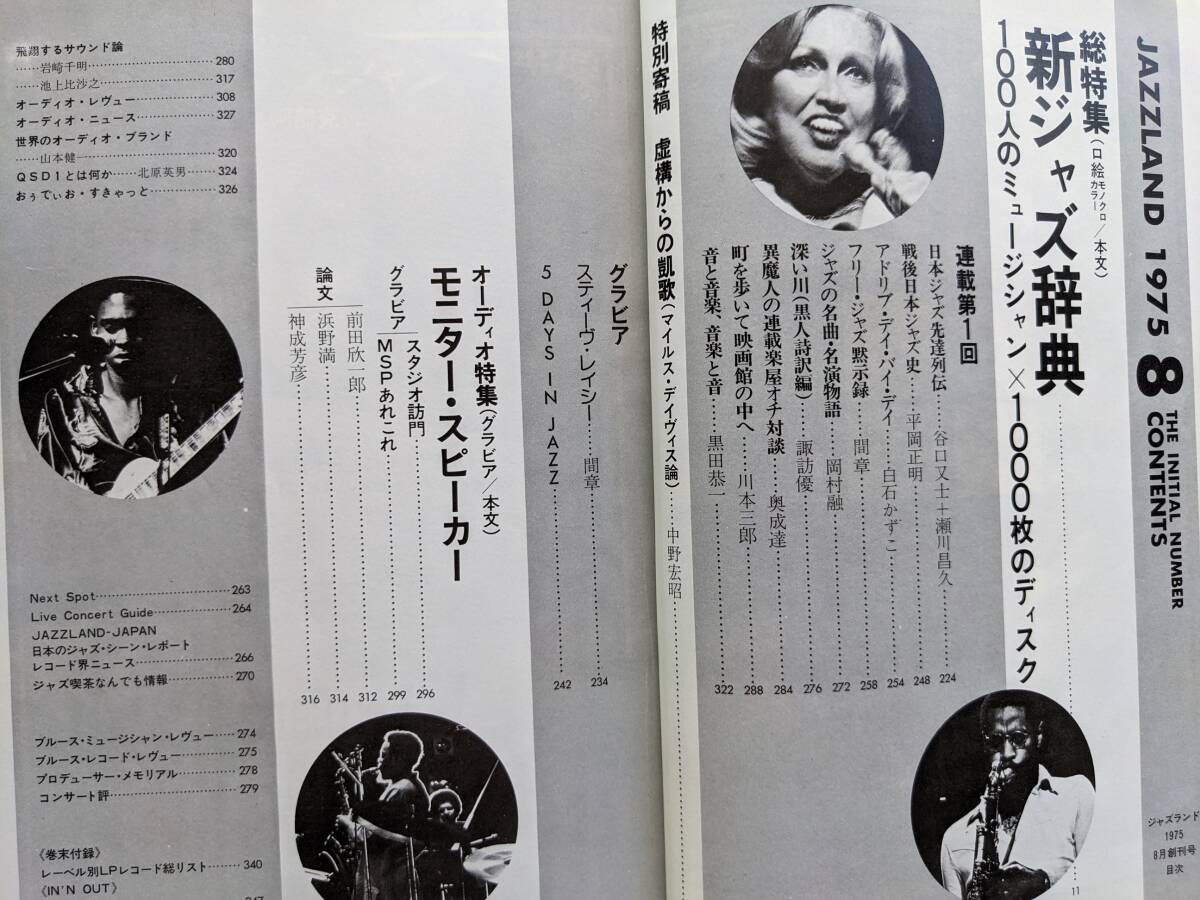 JAZZLAND 1975 8 THE INITIAL NUMBER CONTENTS
総特集(口絵カラーモノクロ/本文)
新ジャズ辞典
100人のミュージシャン×1000枚のディスク
11
連載第1回
日本ジャズ先達列伝……谷口又士+瀬川昌久……224
戦後日本ジャズ史……平岡正明……248
アドリブ・デイ・バイ・デイ……白石かずこ……254
フリー・ジャズ黙示録……間章……258
ジャズの名曲・名演物語……岡村融……272
深い川(黒人詩訳編)……諏訪優……276
異魔人の連載楽屋オチ対談……奥成達……284
町を歩いて映画館の中へ……川本三郎……288
音と音楽、音楽と音……黒田恭一……322
特別寄稿 虚構からの凱歌(マイルス・デイヴィス論)……中野宏昭……
グラビア
スティーヴ・レイシー……間章……234
5 DAYS IN JAZZ……242
オーディオ特集(グラビア/本文)
モニター・スピーカー
グラビア
スタジオ訪問……296
MSPあれこれ……299
論文
前田欣一郎……312
浜野満……314
神成芳彦……316
飛翔するサウンド論
……岩崎千明……280
……池上比沙之……317
オーディオ・レヴュー……308
オーディオ・ニュース……327
世界のオーディオ・ブランド
……山本健一……320
QSD1とは何か……北原英男……324
おぅてぃお・すきゃっと……326
Next Spot……263
Live Concert Guide……264
JAZZLAND-JAPAN
日本のジャズ・シーン・レポート
レコード界ニュース……266
ジャズ喫茶なんでも情報……270
ブルース・ミュージシャン・レヴュー……274
ブルース・レコード・レヴュー……275
プロデューサー・メモリアル……278
コンサート評……279
《巻末付録》
レーベル別LPレコード総リスト……340
《IN'N OUT》
ジャズランド
1975
8月創刊号
目次